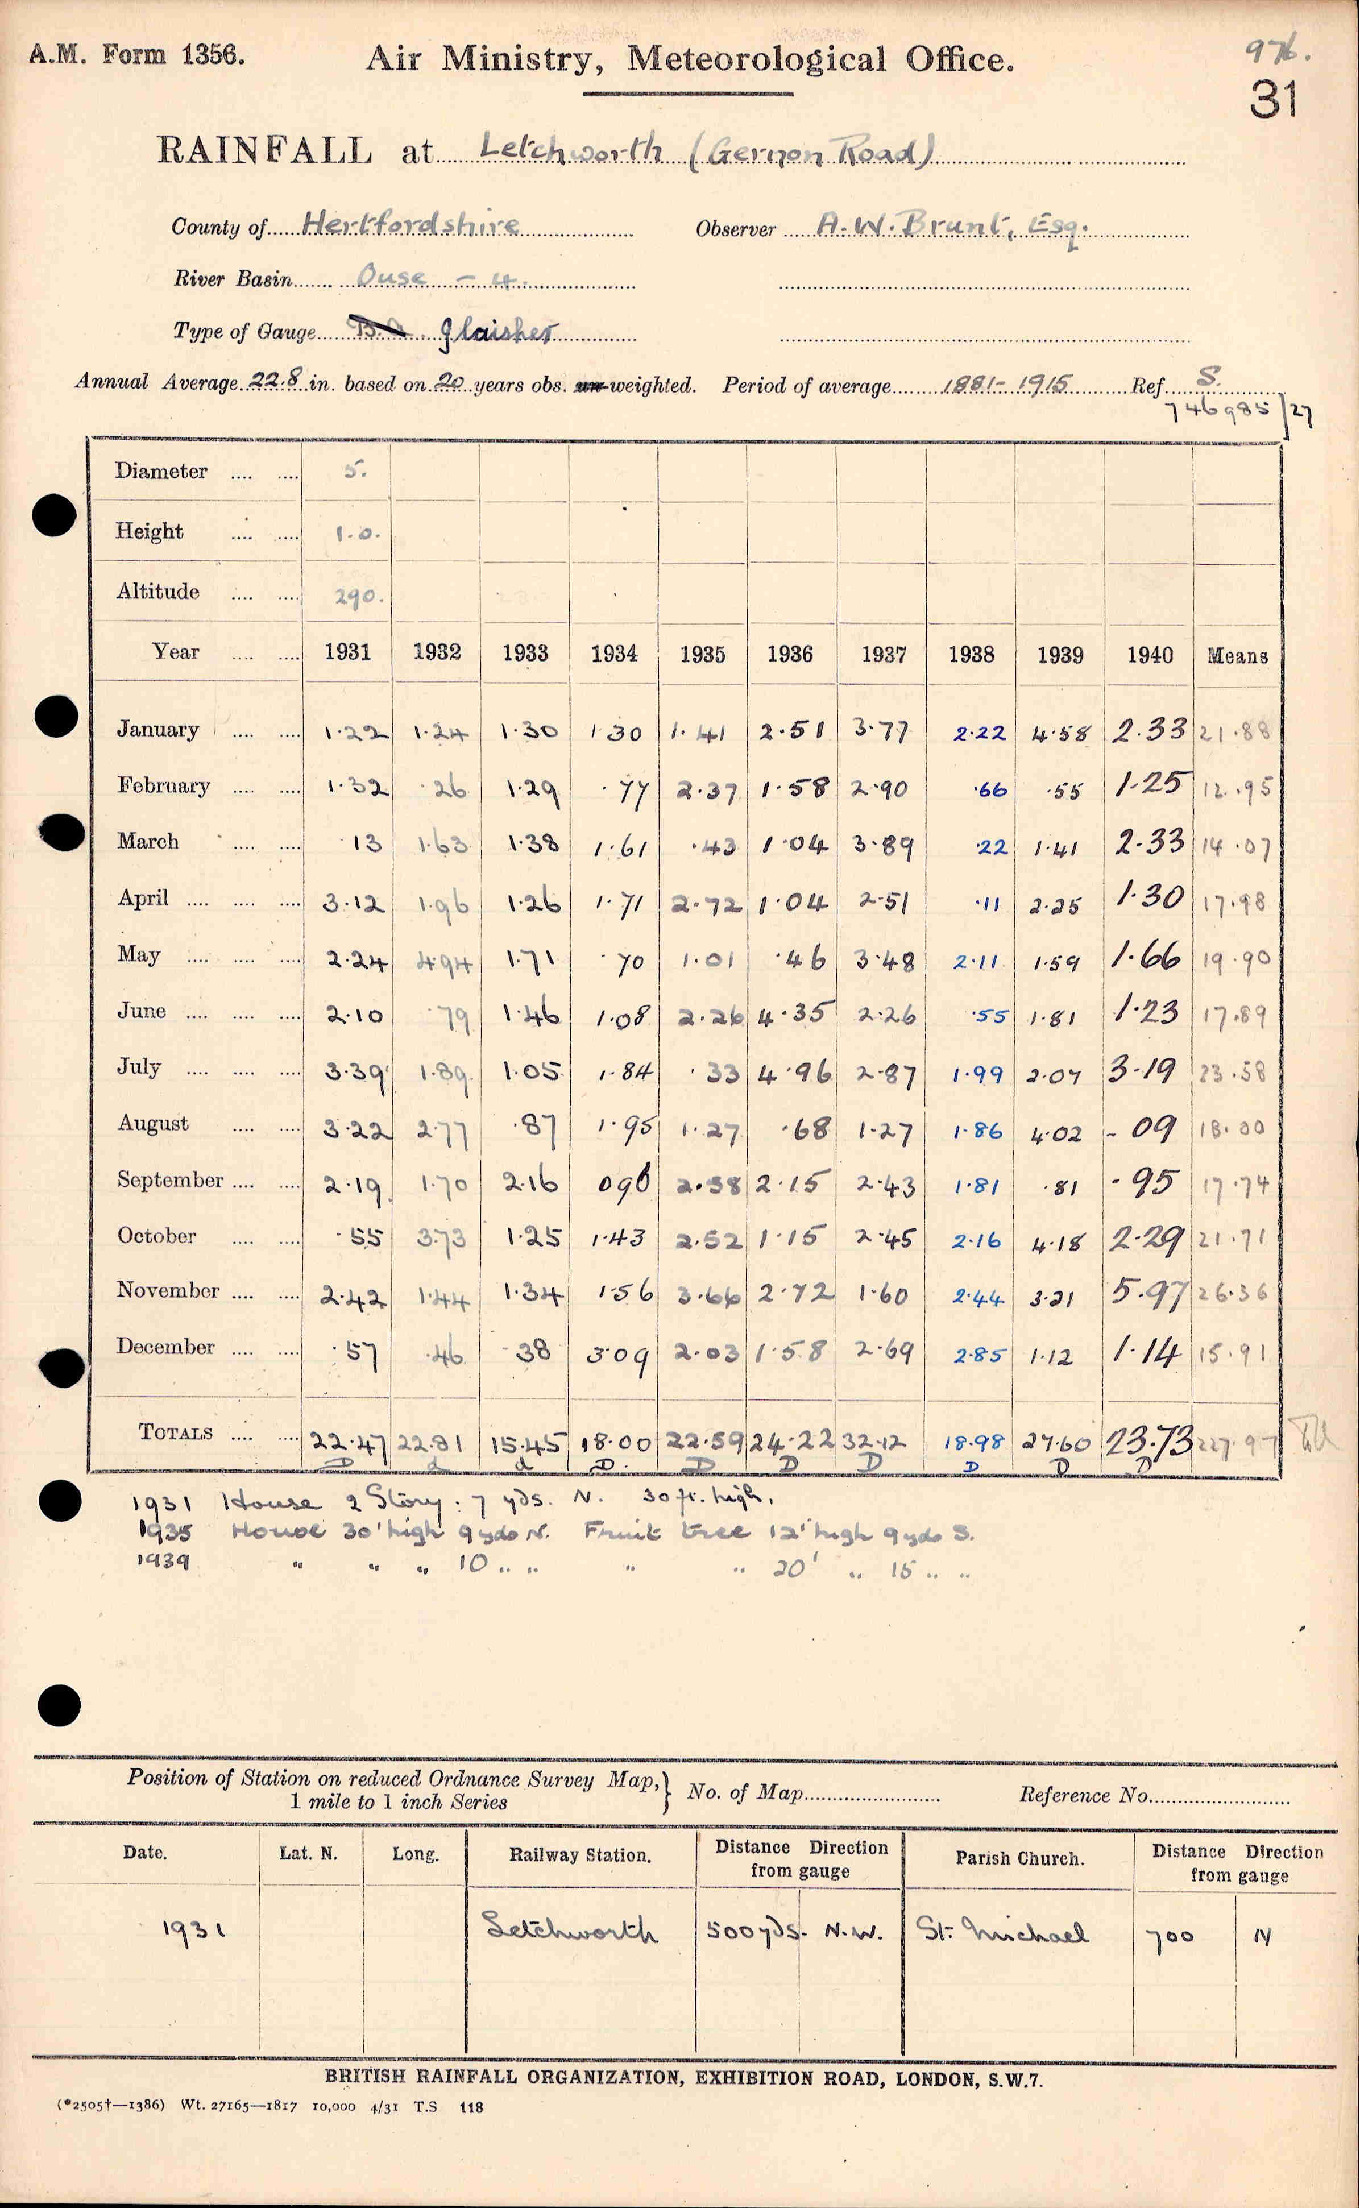 A.M. Form 1356.
Air Ministry, Meteorological Office.
976.
31
RAINFALL at Letchworth (Gernon Road)
County of Hertfordshire Observer A.W. Brunt, Esq.
River Basin Ouse - 4.
Type of Gauge glaisher
Annual Average 22.8 in. based on 20 years obs. un-weighted. Period of average 1881-1915 Ref S.
746985/27
Diameter 5.
Height 1.0.
Altitude 290.
Year 1931 1932 1933 1934 1935 1936 1937 1938 1939 1940 Means
January 1.22 1.24 1.30 1.30 1.41 2.51 3.77 2.22 4.58 2.33 21.88
February 1.32 .26 1.29 .77 2.37 1.58 2.90 .66 .55 1.25 12.95
March .13 1.63 1.38 1.61 .43 1.04 3.89 .22 1.41 2.33 14.07
April 3.12 1.96 1.26 1.71 2.72 1.04 2.51 .11 2.25 1.30 17.98
May 2.24 4.94 1.71 .70 1.01 .46 3.48 2.11 1.59 1.66 19.90
June 2.10 .79 1.46 1.08 2.26 4.35 2.26 .55 1.81 1.23 17.89
July 3.39 1.89 1.05 1.84 .33 4.96 2.87 1.99 2.07 3.19 23.58
August 3.22 2.77 .87 1.95 1.27 .68 1.27 1.86 4.02 - 09 18.00
September 2.19 1.70 2.16 096 2.58 2.15 2.43 1.81 .81 .95 17.74
October .55 3.73 1.25 1.43 2.52 1.15 2.45 2.16 4.18 2.29 21.71
November 2.42 1.44 1.34 1.56 3.66 2.72 1.60 2.44 3.21 5.97 26.36
December .57 .46 .38 3.09 2.03 1.58 2.69 2.85 1.12 1.14 15.91
TOTALS 22.47 22.81 15.45 18.00 22.59 24.22 32.12 18.98 27.60 23.73 227.97
D d d D. D D D D D D
1931 House 2 Story: 7 yds. N. 30 ft. high.
1935 House 30' high 9 yds N. Fruit tree 12' high 9 yds S.
1939 " " " 10 " " " " 20' " 15 " "
Position of Station on reduced Ordnance Survey Map,} No. of Map Reference No.
1 mile to 1 inch Series
Date. Lat. N. Long. Railway Station. Distance Direction from gauge Parish Church. Distance Direction from gauge
1931 Letchworth 500 yds. N.W. St. Michael 700 N
BRITISH RAINFALL ORGANIZATION, EXHIBITION ROAD, LONDON, S.W.7.
(*2505†—1386) Wt. 27165—1817 10,000 4/31 T.S 118